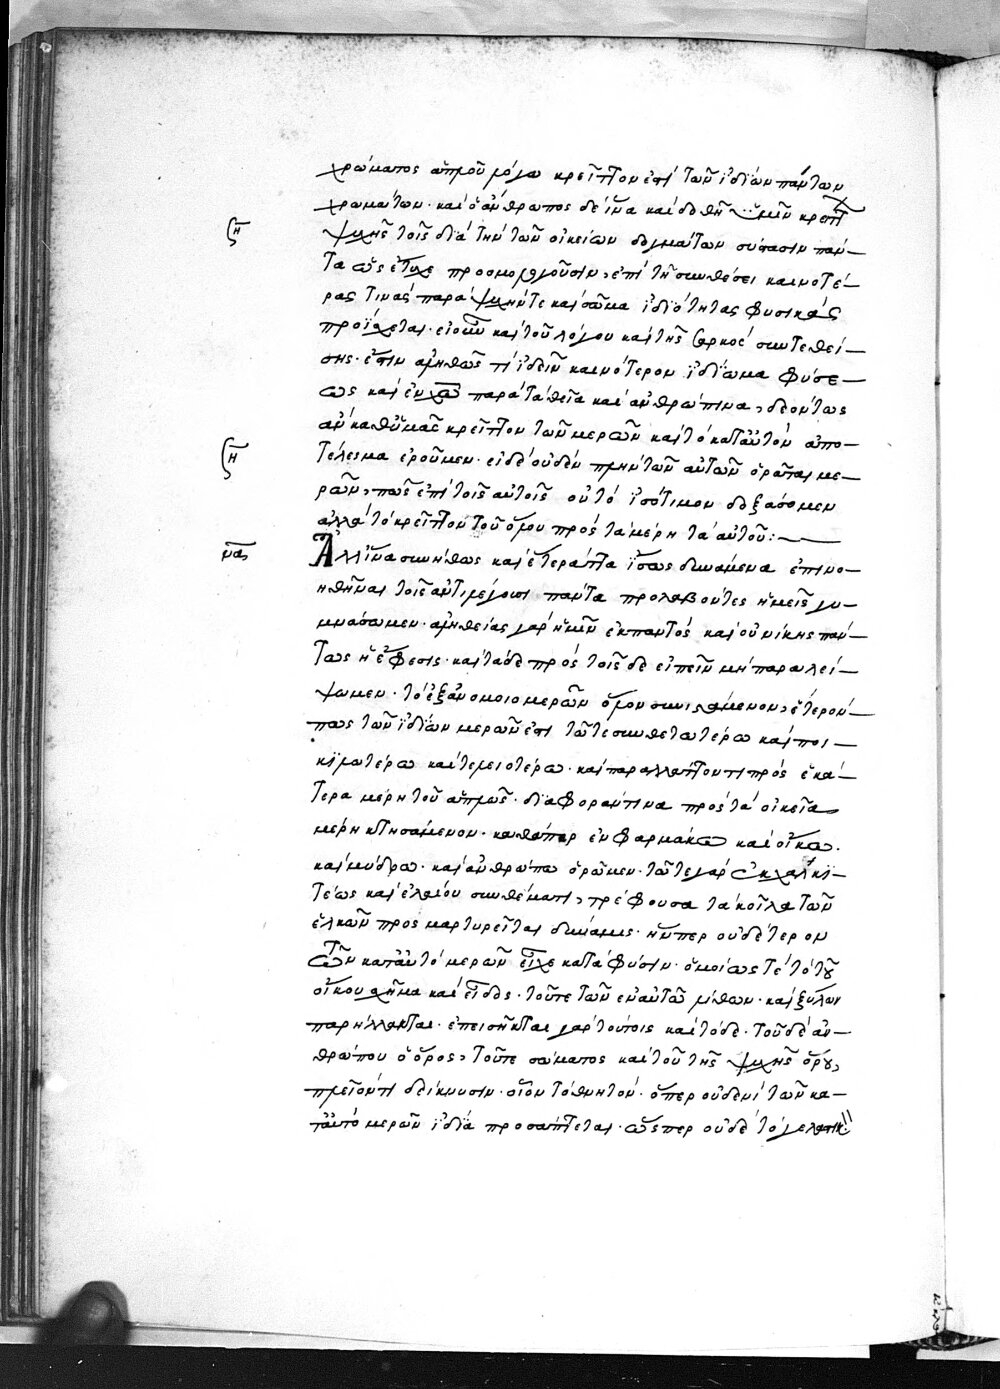 χρώματος ἁπλοῦ λόγω κρεῖττον ἐπὶ τῶν ἰδίων πάντων
χρωμάτων· καὶ ὁ ἄνθρωπος δὲ ἵνα καὶ δοθῆ ὑμῖν κρεῖττ
ζη ψυχῆς τοῖς διὰ τὴν τῶν οἰκείων δογμάτων σύστασιν πάν-
τα ὡς ἔτυχε προσομολογοῦσιν, ἐπὶ τῆ συνθέσει καινοτέ-
ρας τινὰς παρὰ ψυχήν τε καὶ σῶμα ἰδιότητας φυσικὰς
προΐσχεται· εἰ οὖν καὶ τοῦ λόγου καὶ τῆς σαρκὸς συντεθεί-
σης· ἔστιν ἀληθῶς τὶ ἰδεῖν καινότερον ἰδίωμα φύσε-
ως καὶ ἐν χῶ παρὰ τὰ θεῖα καὶ ἀνθρώπινα, δεόντως
ἂν καθ' ὑμᾶς κρεῖττον τῶν μερῶν καὶ τὸ κατ' αὐτὸν ἀπο-
ζη τέλεσμα ἐροῦμεν· εἰ δὲ οὐδὲν πλὴν τῶν αὐτῶν ὁρᾶται με-
ρῶν, πῶς ἐπὶ τοῖς αὐτοῖς οὐ τὸ ἰσότιμον δοξάσομεν
ἀλλὰ τὸ κρεῖττον τοῦ ὅλου πρὸς τὰ μέρη τὰ αὐτοῦ:
Ἀλλ' ἵνα συνήθως καὶ ἕτερα ἄττα ἴσως δυνάμενα ἐπινο-
ηθῆναι τοῖς ἀντιλέγουσι πάντα προλαβόντες ἡμεῖς γυ-
μνάσωμεν· ἀληθείας γὰρ ἡμῖν ἐκ παντὸς καὶ οὐ νίκης πάν-
τως ἡ ἔφεσις· καὶ τάδε πρὸς τοῖσδε εἰπεῖν μὴ παραλεί-
ψωμεν· τὸ ἐξ ἀνομοιομερῶν ὅλον συνιστάμενον, ἕτερόν
πως τῶν ἰδίων μερῶν ἐστι τῶ τε συνθετωτέρω καὶ ποι-
κιλωτέρω καὶ τελειοτέρω· καὶ παραλλάττον τι πρὸς ἑκά-
τερα μέρη τοῦ ἁπλῶς· διαφοράν τινα πρὸς τὰ οἰκεῖα
μέρη κτησάμενον· καθάπερ ἐν φαρμάκω καὶ οἴκω·
καὶ μύδρω· καὶ ἀνθρώπω ὁρῶμεν· τῶ τε γὰρ ἐκ χαλκί-
τεως καὶ ἐλαίου συνθέματι, τρέφουσα τὰ κοῖλα τῶν
ἑλκῶν προσμαρτυρεῖται δύναμις· ἥνπερ οὐδέτερον
τῶν κατ' αὐτὸ μερῶν εἶχε κατὰ φύσιν· ὁμοίως τὲ τὸ τοῦ
οἴκου σχῆμα καὶ εἶδος· τοῦ τε τῶν ἐν αὐτῶ λίθων· καὶ ξύλων
παρήλλακται· ἐπεισῆκται γὰρ τούτοις καὶ τόδε· τοῦ δὲ ἀν-
θρώπου ὁ ὅρος, τοῦ τε σώματος καὶ τοῦ τῆς ψυχῆς ὅρου,
πλεῖόν τι δείκνυσιν· οἷον τὸ θνητόν· ὅπερ οὐδενὶ τῶν κα-
τ' αὐτὸ μερῶν ἰδία προσάπτεται· ὥσπερ οὐδὲ τὸ γελαστικ